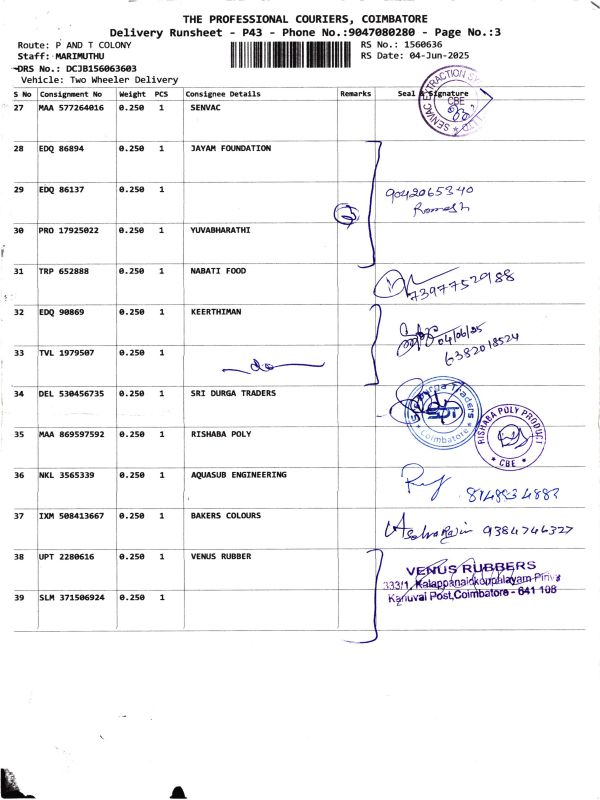 THE PROFESSIONAL COURIERS, COIMBATORE
Delivery Runsheet - P43 - Phone No.:9047080280 - Page No.:3
Route: P AND T COLONY
RS No.: 1560636
Staff: MARIMUTHU
RS Date: 04-Jun-2025
DRS No.: DCJB156063603
Vehicle: Two Wheeler Delivery
S No Consignment No Weight PCS Consignee Details Remarks Seal & Signature
27 MAA 577264016 0.250 1 SENVAC
SENVAC EXTRACTION CBE
28 EDQ 86894 0.250 1 JAYAM FOUNDATION
29 EDQ 86137 0.250 1 9042065340
Ramesh
30 PRO 17925022 0.250 1 YUVABHARATHI
31 TRP 652888 0.250 1 NABATI FOOD
7397752988
32 EDQ 90869 0.250 1 KEERTHIMAN
04/06/25
33 TVL 1979507 0.250 1 do 6382018524
34 DEL 530456735 0.250 1 SRI DURGA TRADERS
Sri Durga Traders SDT Coimbatore
35 MAA 869597592 0.250 1 RISHABA POLY
RISHABA POLY PRODUCT CBE
36 NKL 3565339 0.250 1 AQUASUB ENGINEERING
8148934883
37 IXM 508413667 0.250 1 BAKERS COLOURS
9384746327
38 UPT 2280616 0.250 1 VENUS RUBBER
VENUS RUBBERS
333/1, Kalappanaickenpalayam Pirivu
Kanuvai Post,Coimbatore - 641 108
39 SLM 371506924 0.250 1